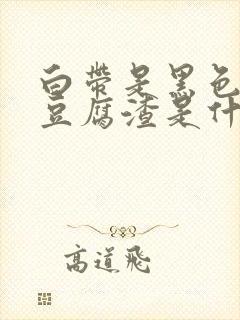 白帶是黑色
豆腐渣是什
高道飛